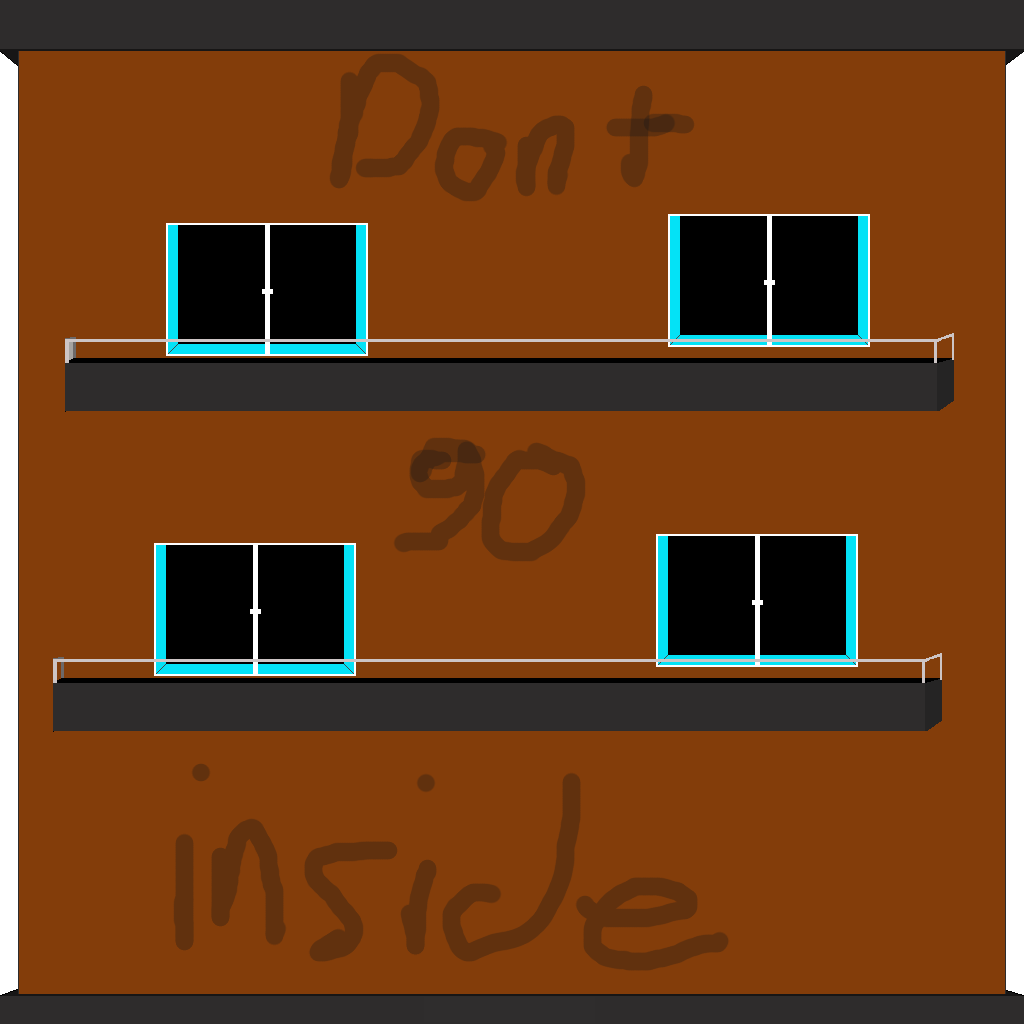 Dont
90
inside